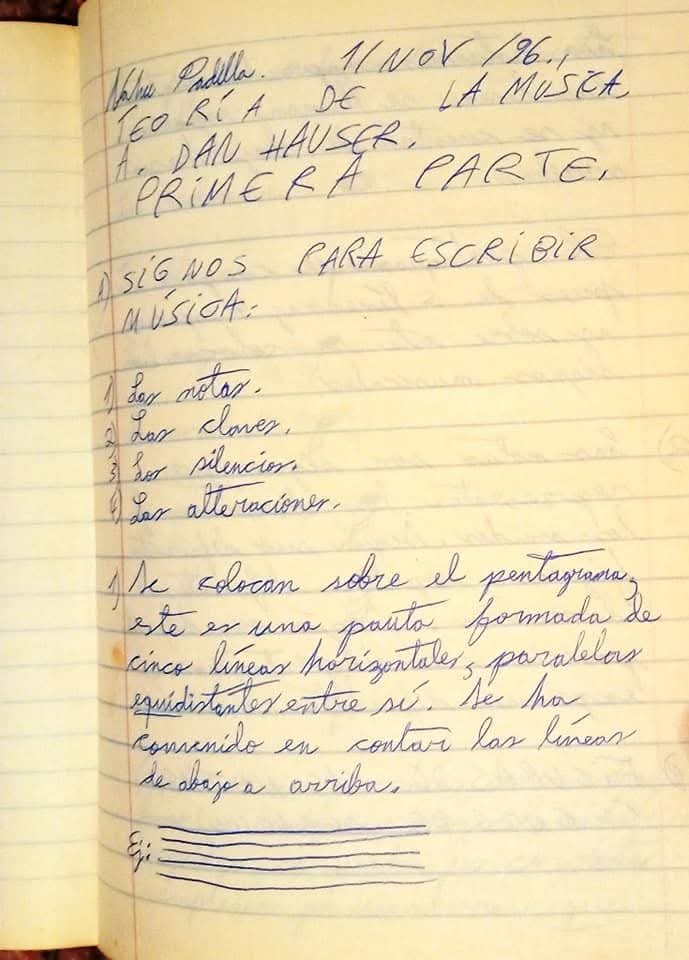 Nahu Padilla. 11 NOV /96.,
TEORÍA DE LA MÚSICA.
A. DAN HAUSER.
PRIMERA PARTE.
A) SIGNOS PARA ESCRIBIR
MÚSICA:
1) Las notas.
2) Las claves.
3) Los silencios.
4) Las alteraciones.
1) Se colocan sobre el pentagrama,
este es una pauta formada de
cinco líneas horizontales, paralelas
equidistantes entre sí. Se ha
convenido en contar las líneas
de abajo a arriba.
Ej: